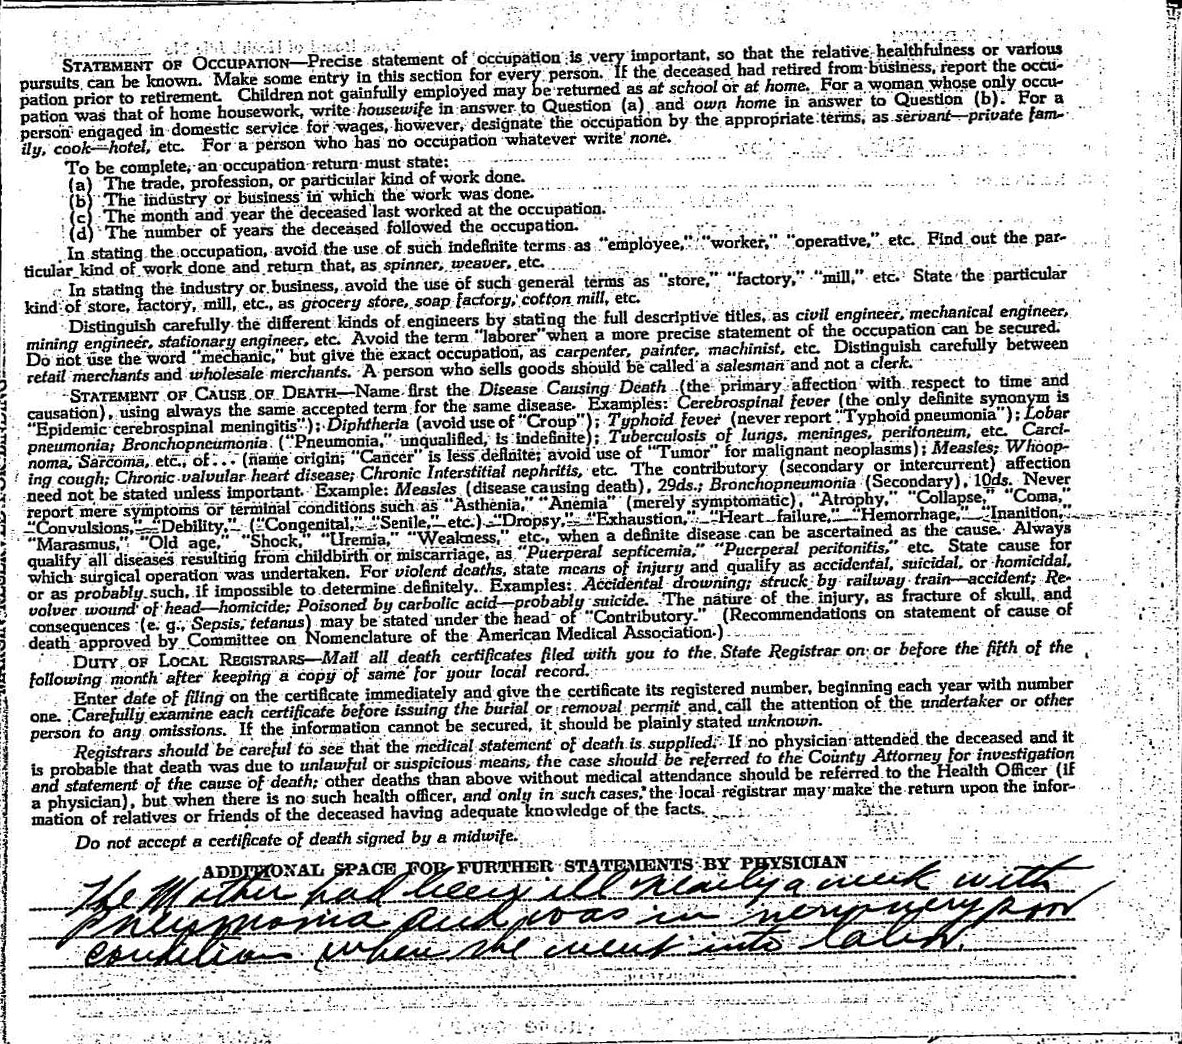 STATEMENT OF OCCUPATION—Precise statement of occupation is very important, so that the relative healthfulness or various
pursuits can be known. Make some entry in this section for every person. If the deceased had retired from business, report the occu-
pation prior to retirement. Children not gainfully employed may be returned as at school or at home. For a woman whose only occu-
pation was that of home housework, write housewife in answer to Question (a) and own home in answer to Question (b). For a
person engaged in domestic service for wages, however, designate the occupation by the appropriate terms, as servant—private fam-
ily, cook—hotel, etc. For a person who has no occupation whatever write none.
To be complete, an occupation return must state:
(a) The trade, profession, or particular kind of work done.
(b) The industry or business in which the work was done.
(c) The month and year the deceased last worked at the occupation.
(d) The number of years the deceased followed the occupation.
In stating the occupation, avoid the use of such indefinite terms as "employee," "worker," "operative," etc. Find out the par-
ticular kind of work done and return that, as spinner, weaver, etc.
In stating the industry or business, avoid the use of such general terms as "store," "factory," "mill," etc. State the particular
kind of store, factory, mill, etc., as grocery store, soap factory, cotton mill, etc.
Distinguish carefully the different kinds of engineers by stating the full descriptive titles, as civil engineer, mechanical engineer,
mining engineer, stationary engineer, etc. Avoid the term "laborer" when a more precise statement of the occupation can be secured.
Do not use the word "mechanic," but give the exact occupation, as carpenter, painter, machinist, etc. Distinguish carefully between
retail merchants and wholesale merchants. A person who sells goods should be called a salesman and not a clerk.
STATEMENT OF CAUSE OF DEATH—Name first the Disease Causing Death (the primary affection with respect to time and
causation), using always the same accepted term for the same disease. Examples: Cerebrospinal fever (the only definite synonym is
"Epidemic cerebrospinal meningitis"); Diphtheria (avoid use of "Croup"); Typhoid fever (never report "Typhoid pneumonia"); Lobar
pneumonia; Bronchopneumonia ("Pneumonia," unqualified, is indefinite); Tuberculosis of lungs, meninges, peritoneum, etc. Carci-
noma, Sarcoma, etc., of... (name origin; "Cancer" is less definite; avoid use of "Tumor" for malignant neoplasms); Measles; Whoop-
ing cough; Chronic valvular heart disease; Chronic Interstitial nephritis, etc. The contributory (secondary or intercurrent) affection
need not be stated unless important. Example: Measles (disease causing death), 29ds.; Bronchopneumonia (Secondary), 10ds. Never
report mere symptoms or terminal conditions such as "Asthenia," "Anemia" (merely symptomatic), "Atrophy," "Collapse," "Coma,"
"Convulsions," "Debility," ("Congenital," "Senile," etc.) "Dropsy," "Exhaustion," "Heart failure," "Hemorrhage," "Inanition,"
"Marasmus," "Old age," "Shock," "Uremia," "Weakness," etc., when a definite disease can be ascertained as the cause. Always
qualify all diseases resulting from childbirth or miscarriage, as "Puerperal septicemia," "Puerperal peritonitis," etc. State cause for
which surgical operation was undertaken. For violent deaths, state means of injury and qualify as accidental, suicidal, or homicidal,
or as probably such, if impossible to determine definitely. Examples: Accidental drowning; struck by railway train—accident; Re-
volver wound of head—homicide; Poisoned by carbolic acid—probably suicide. The nature of the injury, as fracture of skull, and
consequences (e. g., Sepsis, tetanus) may be stated under the head of "Contributory." (Recommendations on statement of cause of
death approved by Committee on Nomenclature of the American Medical Association.)
DUTY OF LOCAL REGISTRARS—Mail all death certificates filed with you to the State Registrar on or before the fifth of the
following month after keeping a copy of same for your local record.
Enter date of filing on the certificate immediately and give the certificate its registered number, beginning each year with number
one. Carefully examine each certificate before issuing the burial or removal permit and call the attention of the undertaker or other
person to any omissions. If the information cannot be secured, it should be plainly stated unknown.
Registrars should be careful to see that the medical statement of death is supplied. If no physician attended the deceased and it
is probable that death was due to unlawful or suspicious means, the case should be referred to the County Attorney for investigation
and statement of the cause of death; other deaths than above without medical attendance should be referred to the Health Officer (if
a physician), but when there is no such health officer, and only in such cases, the local registrar may make the return upon the infor-
mation of relatives or friends of the deceased having adequate knowledge of the facts.
Do not accept a certificate of death signed by a midwife.
ADDITIONAL SPACE FOR FURTHER STATEMENTS BY PHYSICIAN
The Mother had been ill nearly a week with
Pneumonia and was in very very poor
condition when she went into labor.